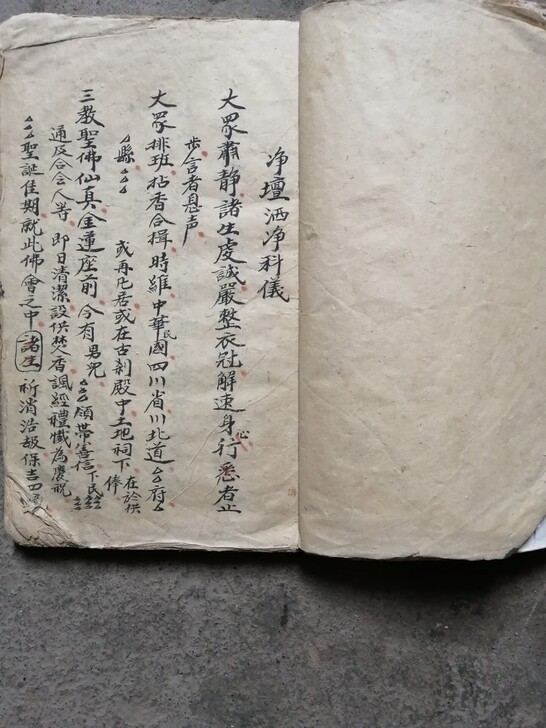 净壇洒净科儀
大眾肅静諸生虔誠嚴整衣冠解速身心行悪者止
步言者息声
大眾排班拈香合揖時維中華民國四川省川北道△△府△
△縣△△△ 或再凡居或在古刹殿中土地祠下 在於供俸
三教聖佛仙真金蓮座前今有男兒△△△領帶善信下民△△△
通及合会人等即日清潔設供焚香諷經禮懺為慶祝
△△△聖誕佳期就此佛會之中諸生祈消浩劫保吉四